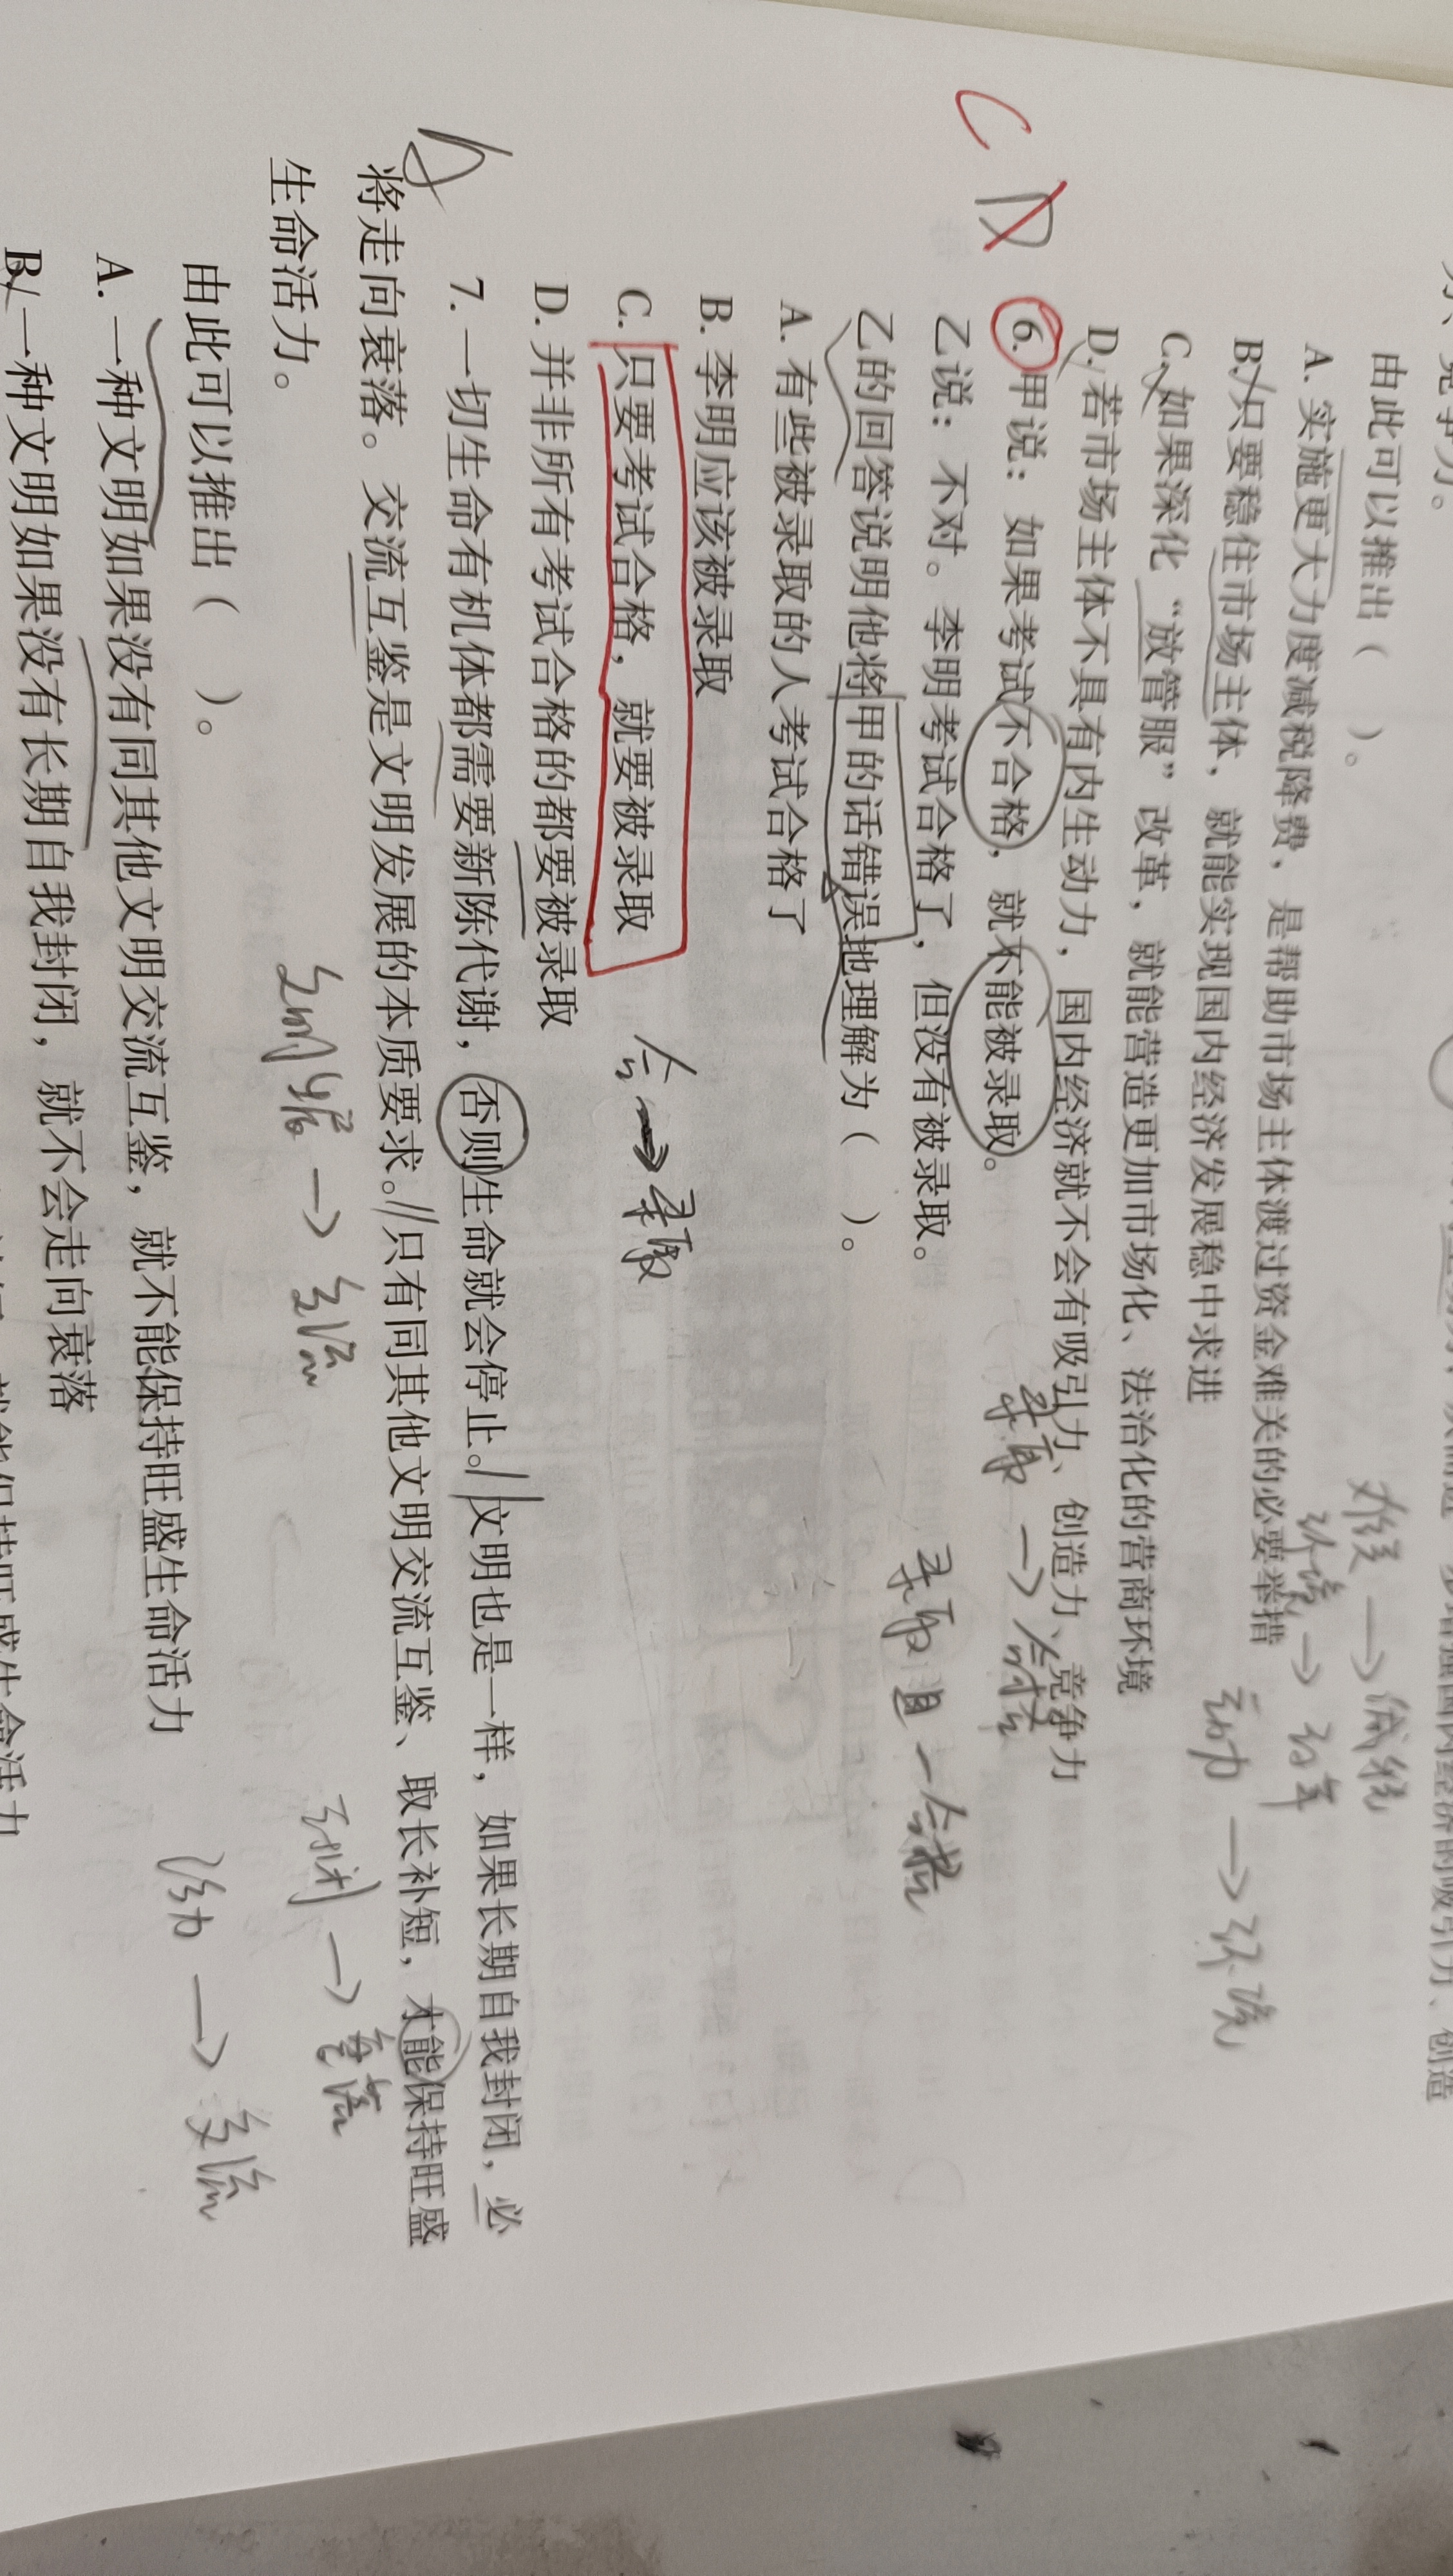 由此可以推出（　　）。
A. 实施更大力度减税降费，是帮助市场主体渡过资金难关的必要举措
B. 只要稳住市场主体，就能实现国内经济发展稳中求进
C. 如果深化“放管服”改革，就能营造更加市场化、法治化的营商环境
D. 若市场主体不具有内生动力，国内经济就不会有吸引力、创造力、竞争力
C D
6. 甲说：如果考试不合格，就不能被录取。
乙说：不对。李明考试合格了，但没有被录取。
乙的回答说明他将甲的话错误地理解为（　　）。
A. 有些被录取的人考试合格了
B. 李明应该被录取
C. 只要考试合格，就要被录取
D. 并非所有考试合格的都要被录取
合→录取
录取→合格
录取且一合格
动力→环境
难关→减税
7. 一切生命有机体都需要新陈代谢，否则生命就会停止。文明也是一样，如果长期自我封闭，必
将走向衰落。交流互鉴是文明发展的本质要求。只有同其他文明交流互鉴、取长补短，才能保持旺盛
生命活力。
→交流
封闭→衰落
由此可以推出（　　）。
活力→交流
A. 一种文明如果没有同其他文明交流互鉴，就不能保持旺盛生命活力
B. 一种文明如果没有长期自我封闭，就不会走向衰落